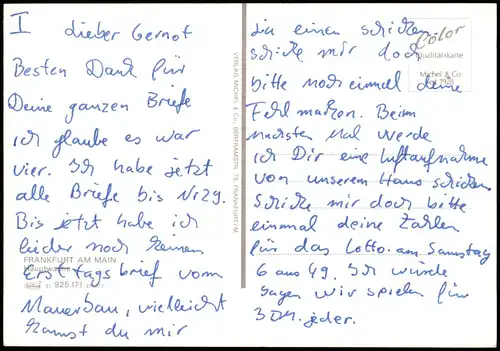 I lieber Gernot
Besten Dank für
Deine ganzen Briefe
ich glaube es war
vier. Ich habe jetzt
alle Briefe bis Nr 29.
Bis jetzt habe ich
leider noch keinen
FRANKFURT AM MAIN
Hauptwache
Ersttagsbrief vom
31 925.171
Mauerbau, vielleicht
kannst du mir
VERLAG MICHEL & Co., FRANKFURT/M.
da einen schicken
schicke mir doch
bitte noch einmal deine
Fehlmarken. Beim
nächsten Mal werde
ich Dir eine Luftaufnahme
von unserem Haus schicken
schicke mir doch bitte
einmal deine Zahlen
für das Lotto am Samstag
6 aus 49. Ich würde
sagen wir spielen für
3 DM. jeder.
Color
Qualitätskarte
Michel & Co
seit 1928